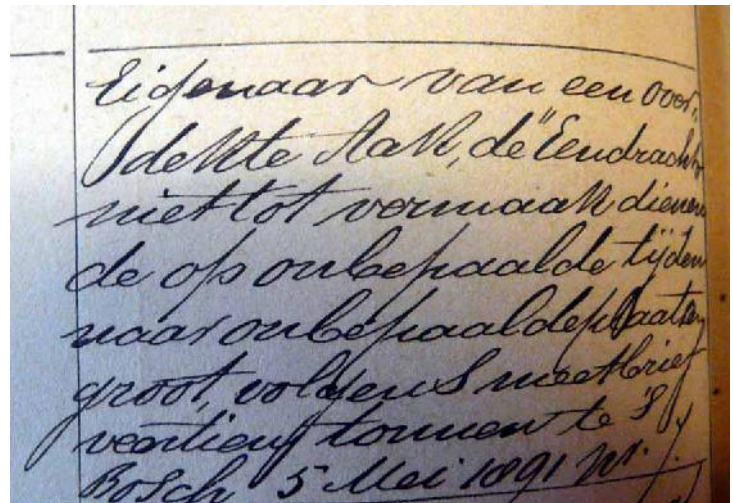 Eigenaar van een over-
dekte Aak, de "Eendracht"
niet tot vermaak dienen
de op onbepaalde tijden
naar onbepaalde plaatsen
groot, volgens meetbrief
veertien tonnen te 's
Bosch 5 Mei 1891 No.